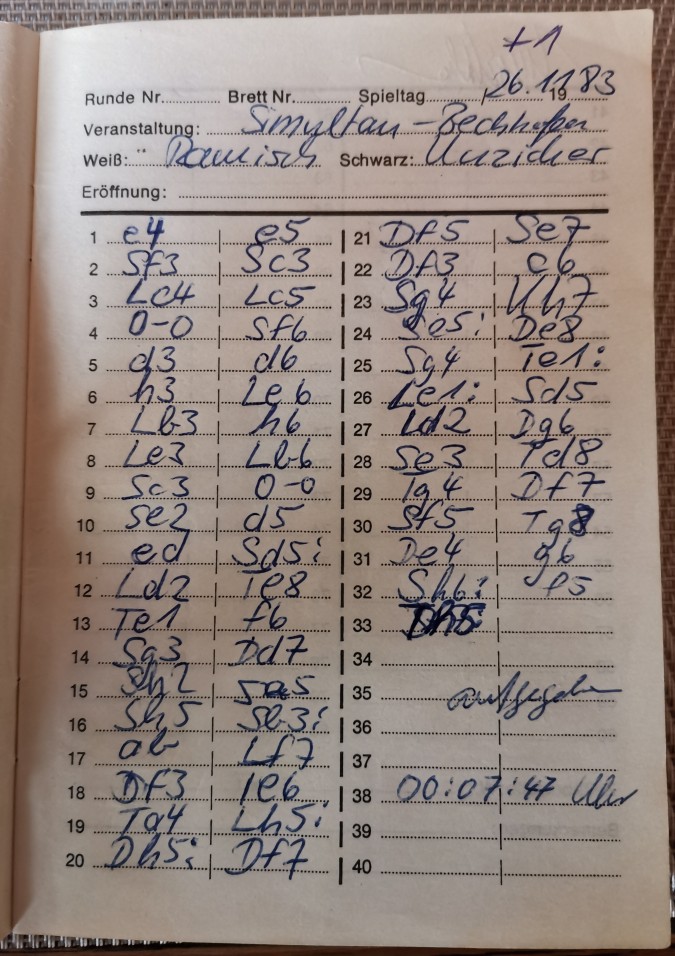 +1
Runde Nr. Brett Nr. Spieltag 26.11 1983
Veranstaltung: Simultan - Bechhofen
Weiß: Ramisch Schwarz: Unzicker
Eröffnung:
1 e4 e5 21 Df5 Se7
2 Sf3 Sc3 22 Df3 c6
3 Lc4 Lc5 23 Sg4 Kh7
4 0-0 Sf6 24 Se5: De8
5 d3 d6 25 Sg4 Te1:
6 h3 Le6 26 Le1: Sd5
7 Lb3 h6 27 Ld2 Dg6
8 Le3 Lb6 28 Se3 Td8
9 Sc3 0-0 29 Tg4 Df7
10 Se2 d5 30 Sf5 Tg8
11 ed Sd5: 31 De4 g6
12 Ld2 Te8 32 Sh6: f5
13 Te1 f6 33 Dh5
14 Sg3 Dd7 34
15 Sh2 Sa5 35 aufgegeben
16 Sh5 Sb3: 36
17 ab Lf7 37
18 Df3 Te6 38 00:07:47 Uhr
19 Ta4 Lh5: 39
20 Dh5: Df7 40